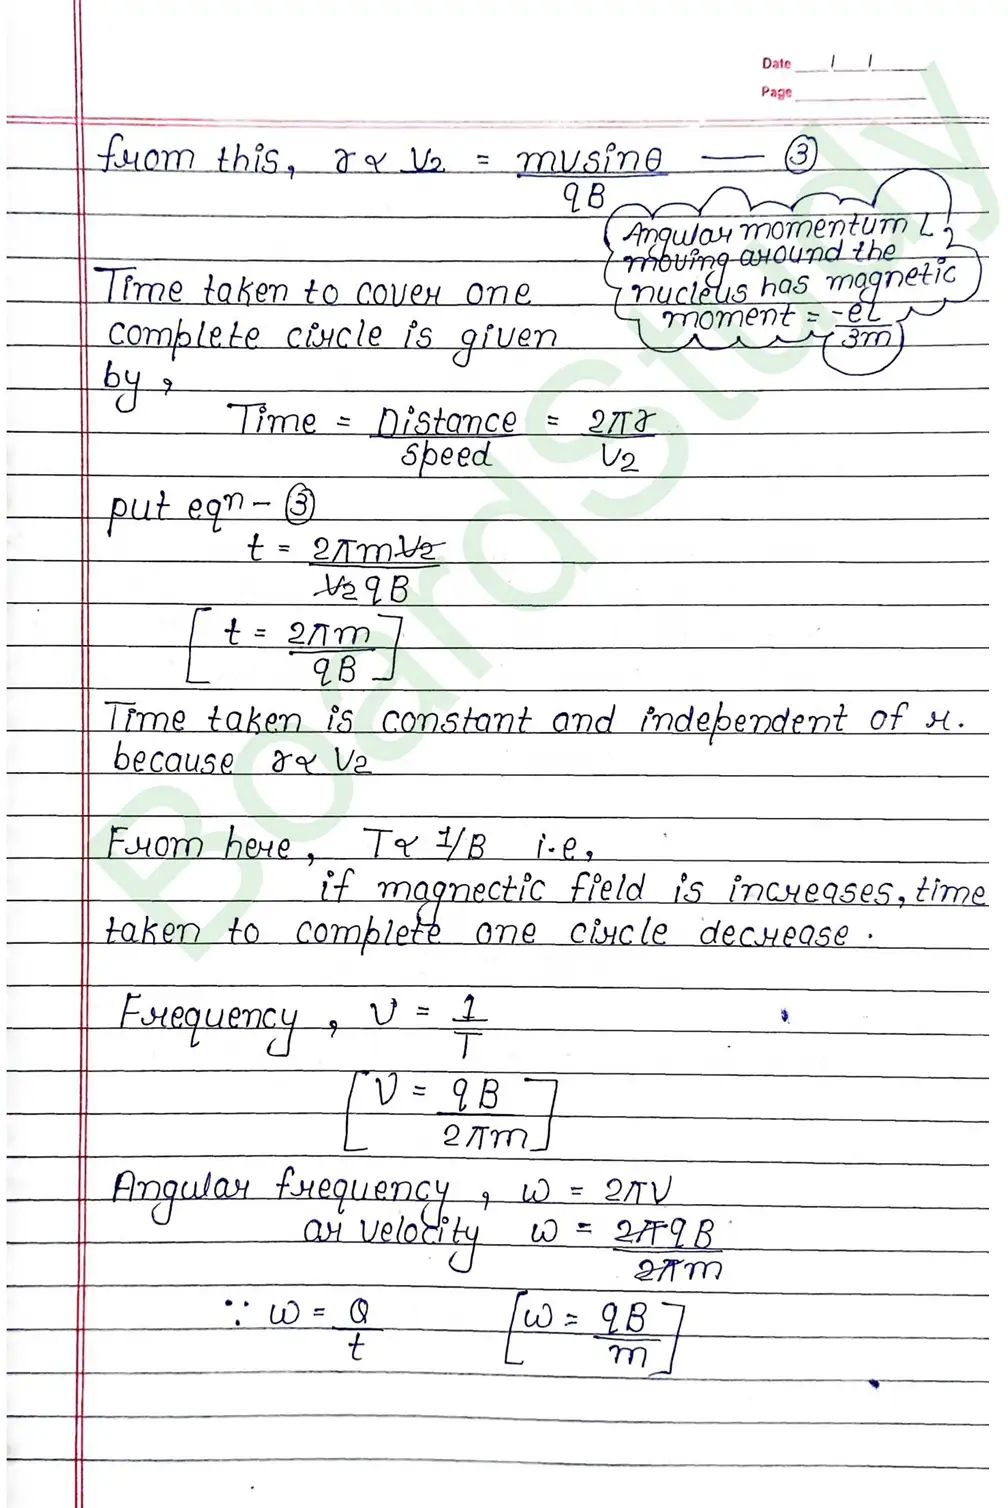 Date / /
Page
from this, r ∝ V2 = mvsinθ / qB — ③
Angular momentum L
moving around the
nucleus has magnetic
moment = -eL / 3m
Time taken to cover one
complete circle is given
by,
Time = Distance / speed = 2πr / V2
put eqn - ③
t = 2πmV2 / V2qB
[t = 2πm / qB]
Time taken is constant and independent of r.
because r ∝ V2
From here, T ∝ 1/B i.e,
if magnectic field is increases, time
taken to complete one circle decrease.
Frequency, ν = 1 / T
[ν = qB / 2πm]
Angular frequency, ω = 2πν
or velocity ω = 2πqB / 2πm
∵ ω = θ / t [ω = qB / m]
BoardStudy